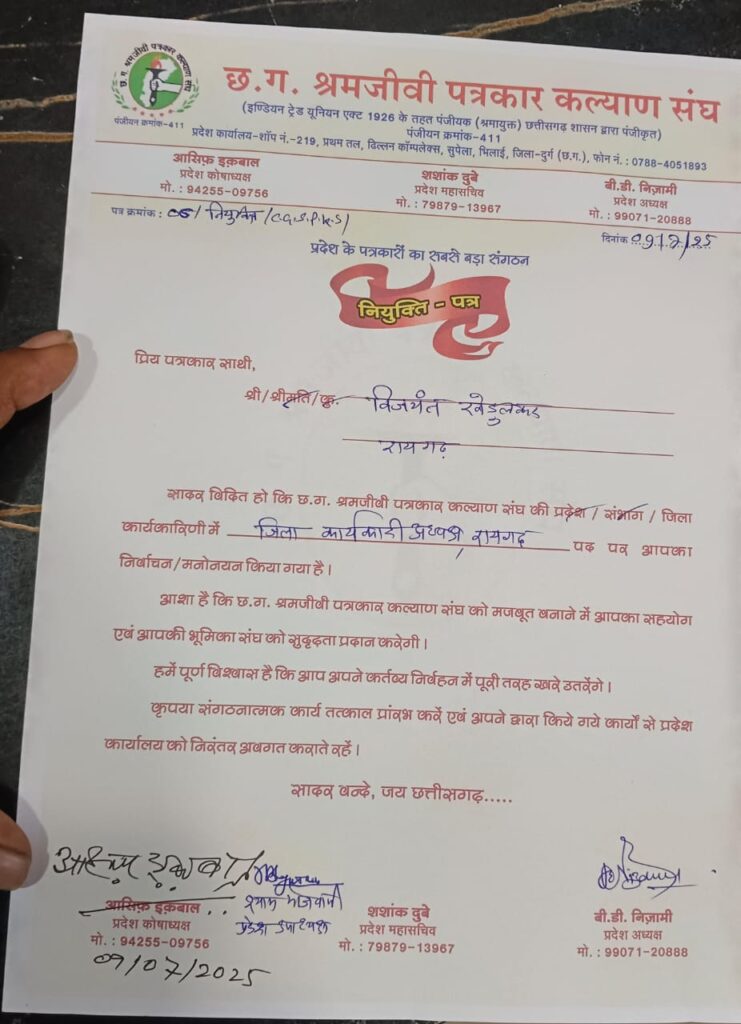 छ.ग. श्रमजीवी पत्रकार कल्याण संघ
छ.ग. श्रमजीवी पत्रकार कल्याण संघ
(इण्डियन ट्रेड यूनियन एक्ट 1926 के तहत पंजीयक (श्रमायुक्त) छत्तीसगढ़ शासन द्वारा पंजीकृत)
पंजीयन क्रमांक-411
पंजीयन क्रमांक-411
प्रदेश कार्यालय-शॉप नं.-219, प्रथम तल, ढिल्लन कॉम्पलेक्स, सुपेला, भिलाई, जिला-दुर्ग (छ.ग.), फोन नं. : 0788-4051893
आसिफ़ इक़बाल
प्रदेश कोषाध्यक्ष
मो. : 94255-09756
शशांक दुबे
प्रदेश महासचिव
मो. : 79879-13967
बी.डी. निज़ामी
प्रदेश अध्यक्ष
मो. : 99071-20888
पत्र क्रमांक : 05/ नियुक्ति /C.G.S.P.K.S)
दिनांक 09/7/25
प्रदेश के पत्रकारों का सबसे बड़ा संगठन
नियुक्ति - पत्र
प्रिय पत्रकार साथी,
श्री/श्रीमृति/कु. विजयंत खेडुलकर
रायगढ़
सादर विदित हो कि छ.ग. श्रमजीवी पत्रकार कल्याण संघ की प्रदेश / संभाग / जिला
कार्यकारिणी में जिला कार्यकारी अध्यक्ष, रायगढ़ पद पर आपका
निर्वाचन/मनोनयन किया गया है।
आशा है कि छ.ग. श्रमजीवी पत्रकार कल्याण संघ को मजबूत बनाने में आपका सहयोग
एवं आपकी भूमिका संघ को सुदृढ़ता प्रदान करेगी।
हमें पूर्ण विश्वास है कि आप अपने कर्तव्य निर्वहन में पूरी तरह खरे उतरेंगे।
कृपया संगठनात्मक कार्य तत्काल प्रांरभ करें एवं अपने द्वारा किये गये कार्यों से प्रदेश
कार्यालय को निरंतर अवगत कराते रहें।
सादर वन्दे, जय छत्तीसगढ़.....
आसिफ इकबाल
आसिफ़ इक़बाल
प्रदेश कोषाध्यक्ष
मो. : 94255-09756
09/07/2025
श्याम
प्रदेश उपाध्यक्ष
शशांक दुबे
प्रदेश महासचिव
मो. : 79879-13967
बी.डी. निज़ामी
प्रदेश अध्यक्ष
मो. : 99071-20888